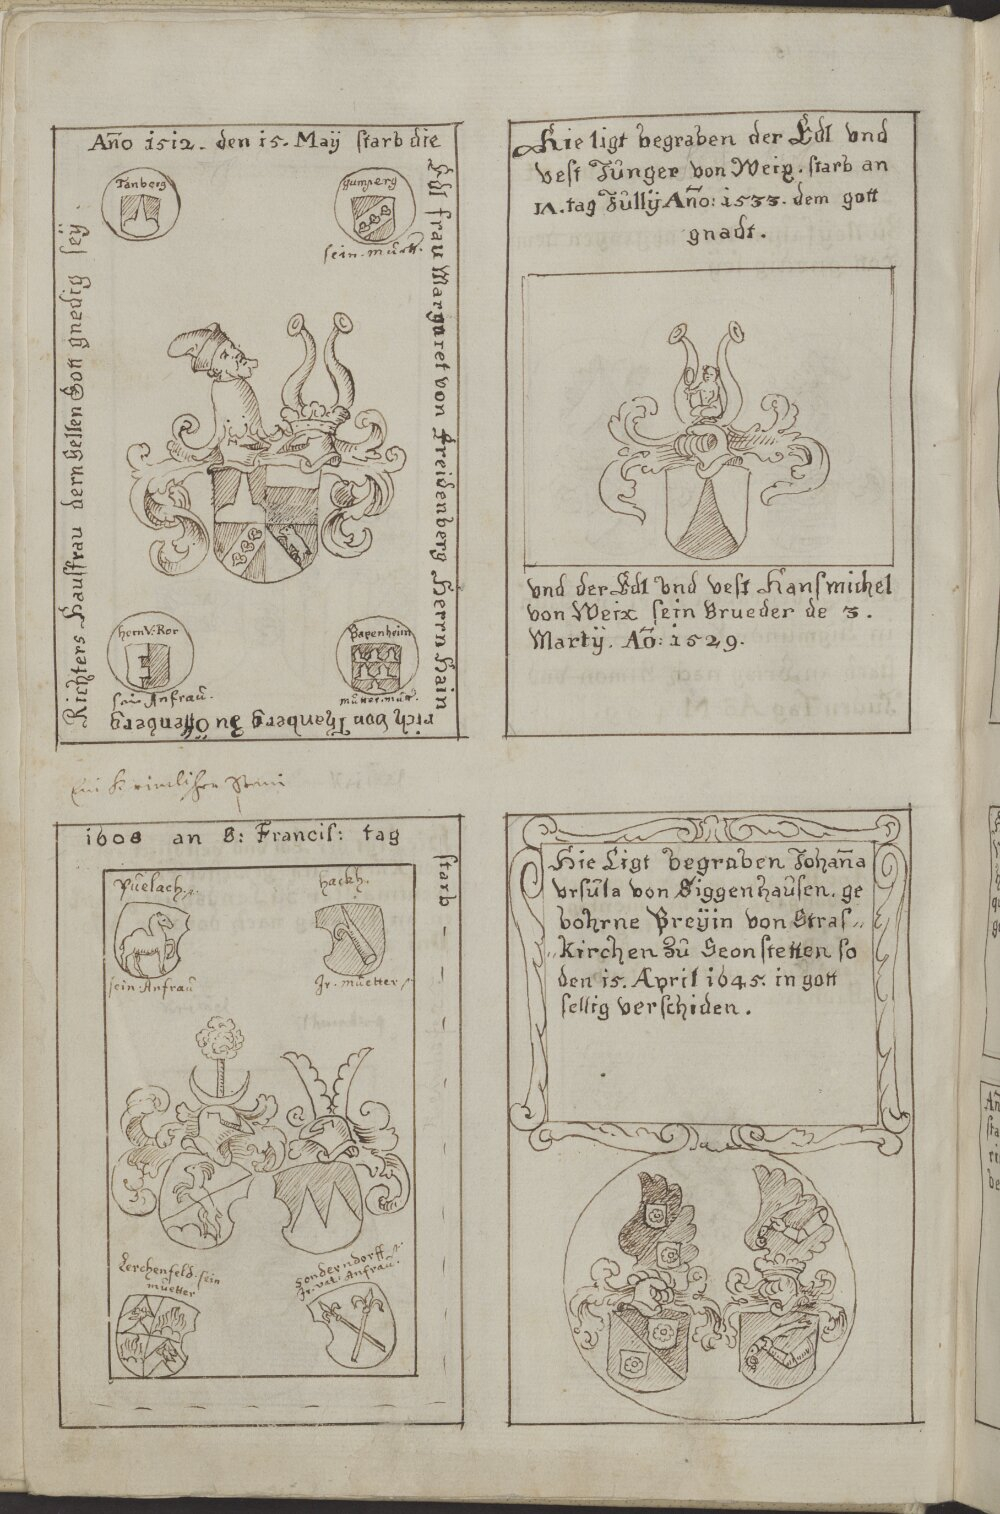 Año 1512. den 15. Maÿ starb die
Edl frau Margaret von Freidenberg Herrn Hain
rich von Thenberg zu Offenberg
Richters Hausfrau dern Sellen Gott gnedig seÿ.
Tanberg
gumperg
sein. muett.
hern V. Ror
sein Anfrau.
Bapenheim
mutter. mutt.
Hie ligt begraben der Edl vnd
vest Jünger von Weix. starb an
17. tag Jullÿ Año: 1533. dem gott
gnadt.
vnd der Edl vnd vest Hansmichel
von Weix sein Brueder de 3.
Martÿ. Aõ: 1529.
Ein
1608 an S: Francis: tag
starb
Püelach
sein Anfraü
hackh.
Jr. müetter
Lerchenfeld. sein
müetter
Sonderndorff
Jr. vat: Anfraü.
Hie Ligt begraben Johaña
Vrsüla von Siggenhaüsen. ge
bohrne Preÿin von Stras„
„kirchen zü Seonstetten so
den 15. April 1645. in gott
sellig verschiden.